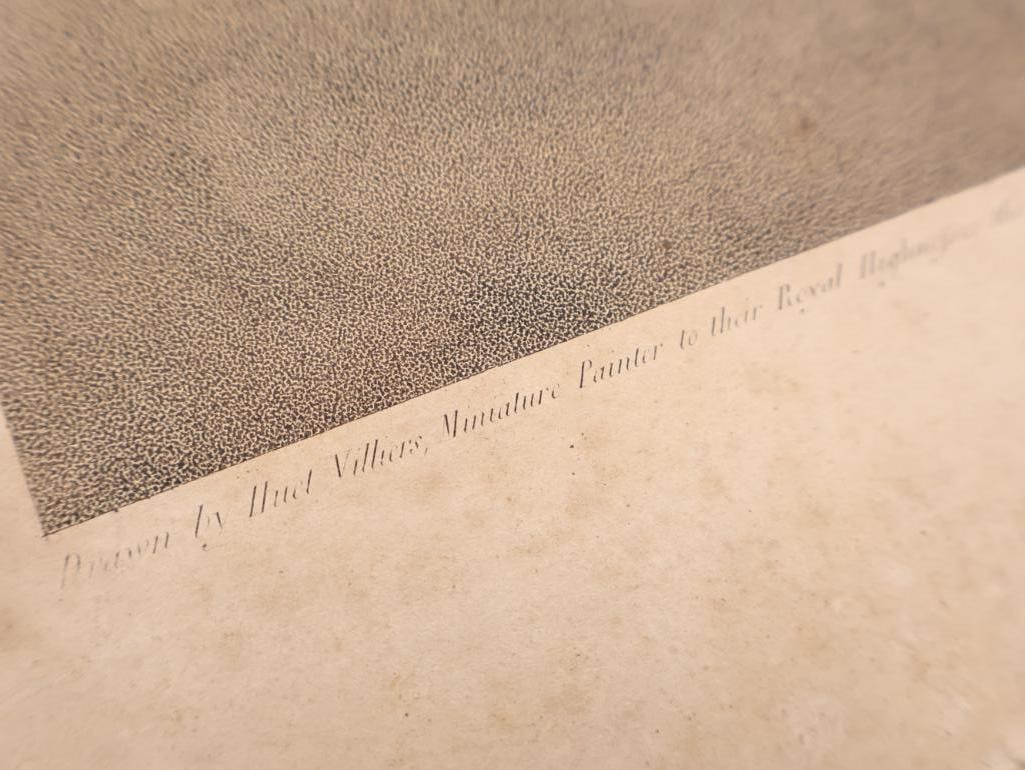 Drawn by Huet Villiers, Miniature Painter to their Royal Highnesses the